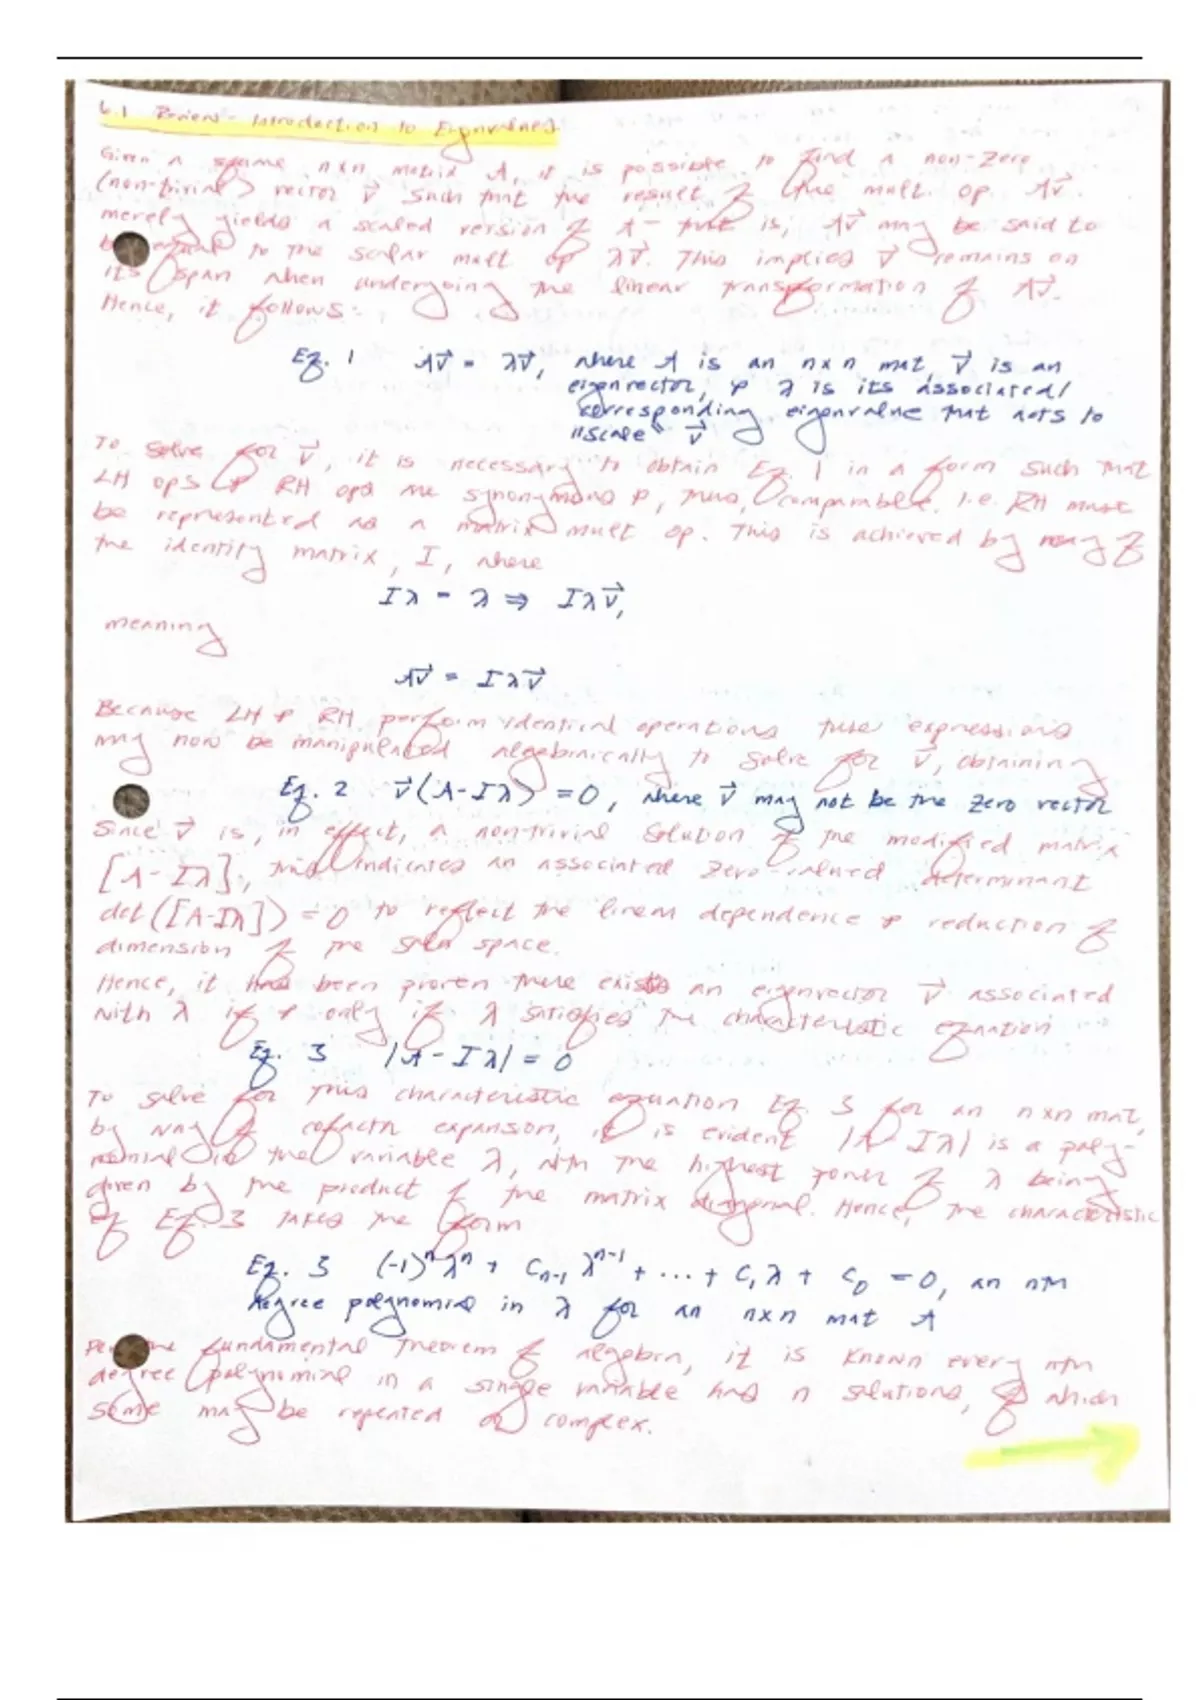 6.1 Review - Introduction to Eigenvalues
Given a square nxn matrix A, it is possible to find a non-zero
(non-trivial) vector v⃗ such that the result of the mult. op. Av⃗
merely yields a scaled version of A - that is, Av⃗ may be said to
be equal to the scalar mult op λv⃗. This implies v⃗ remains on
its span when undergoing the linear transformation of Av⃗.
Hence, it follows:
Eq. 1 Av⃗ = λv⃗, where A is an nxn mat, v⃗ is an
eigenvector, & λ is its associated/
corresponding eigenvalue that acts to
"scale" v⃗
To solve for v⃗, it is necessary to obtain Eq. 1 in a form such that
LH ops & RH ops are synonymous &, thus, comparable. I.e. RH must
be represented as a matrix mult op. This is achieved by way of
the identity matrix, I, where
Iλ = λ ⇒ Iλv⃗,
meaning
Av⃗ = Iλv⃗
Because LH & RH perform identical operations these expressions
may now be manipulated algebraically to solve for v⃗, obtaining
Eq. 2 v⃗(A-Iλ) = 0, where v⃗ may not be the zero vector
Since v⃗ is, in effect, a non-trivial solution of the modified matrix
[A-Iλ], this indicates an associated zero-valued determinant
det([A-Iλ]) = 0 to reflect the linear dependence & reduction of
dimension of the soln space.
Hence, it has been proven there exists an eigenvector v⃗ associated
with λ if & only if λ satisfies the characteristic equation
Eq. 3 |A - Iλ| = 0
To solve for this characteristic equation Eq. 3 for an nxn mat,
by way of cofactor expansion, it is evident |A - Iλ| is a poly-
nomial in the variable λ, with the highest power of λ being
given by the product of the matrix diagonal. Hence, the characteristic
of Eq. 3 takes the form
Eq. 3 (-1)ⁿλⁿ + Cₙ₋₁λⁿ⁻¹ + ... + C₁λ + C₀ = 0, an nth
degree polynomial in λ for an nxn mat A
Per the fundamental theorem of algebra, it is known every nth
degree polynomial in a single variable has n solutions, of which
some may be repeated or complex.